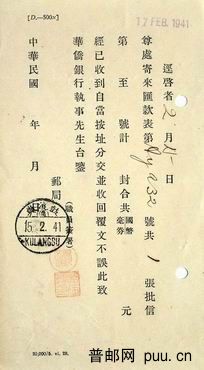 [D.—500x]
17 FEB. 1941
逕啓者2月15日
尊處寄來匯款表第 032 號共1張批信
第 至 號計 封合共國幣毫券 元
經已收到自當按址分交並收回覆文不誤此致
華僑銀行執事先生台鑒
郵局
中華民國 年 月
15. 2. 41
KULANGSU
普邮网 puu.cn